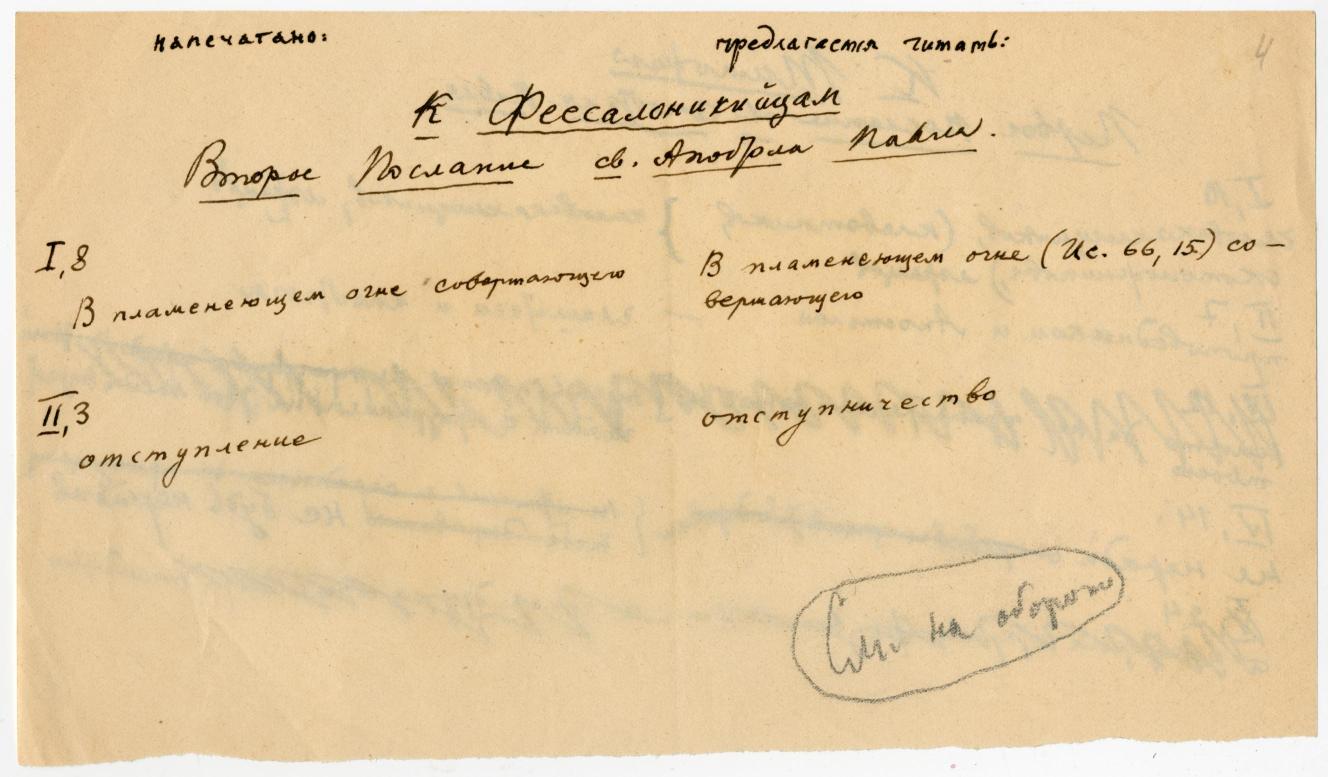 напечатано: предлагается читать: 4
К Фессалоникийцам
Второе Послание св. Апостола Павла.
I,8
В пламенеющем огне совершающего В пламенеющем огне (Ис. 66, 15.) со-
вершающего
II,3
отступление отступничество
См. на обороте